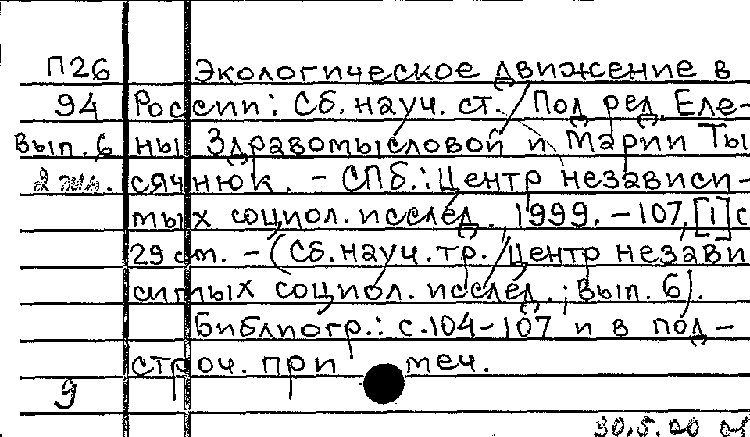 П26 Экологическое движение в
94 России: Сб. науч. ст. / Под ред. Еле-
Вып. 6 ны Здравомысловой и Марии Ты
2 экз. сячнюк. - СПб.: Центр независи-
мых социол. исслед. 1999. - 107, [1] с
29 см. - (Сб. науч. тр. / Центр незави
симых социол. исслед.; Вып. 6).
Библиогр.: с. 104-107 и в под-
строч. примеч.
9
30.5.00